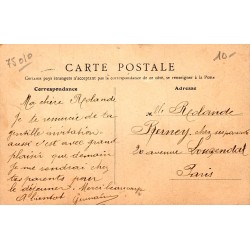 75010
10-
CARTE POSTALE
Certains pays étrangers n'acceptant pas la correspondance de ce côté, se renseigner à la Poste
Correspondance
Adresse
Ma chère Rolande
Je te remercie de ta
gentille invitation
aussi c'est avec grand
plaisir que demain
je me rendrai chez
tes parents pour le
déjeuner. Merci beaucoup
A bientôt Germain
Mlle Rolande
Berney chez ses parents
20 avenue
Paris